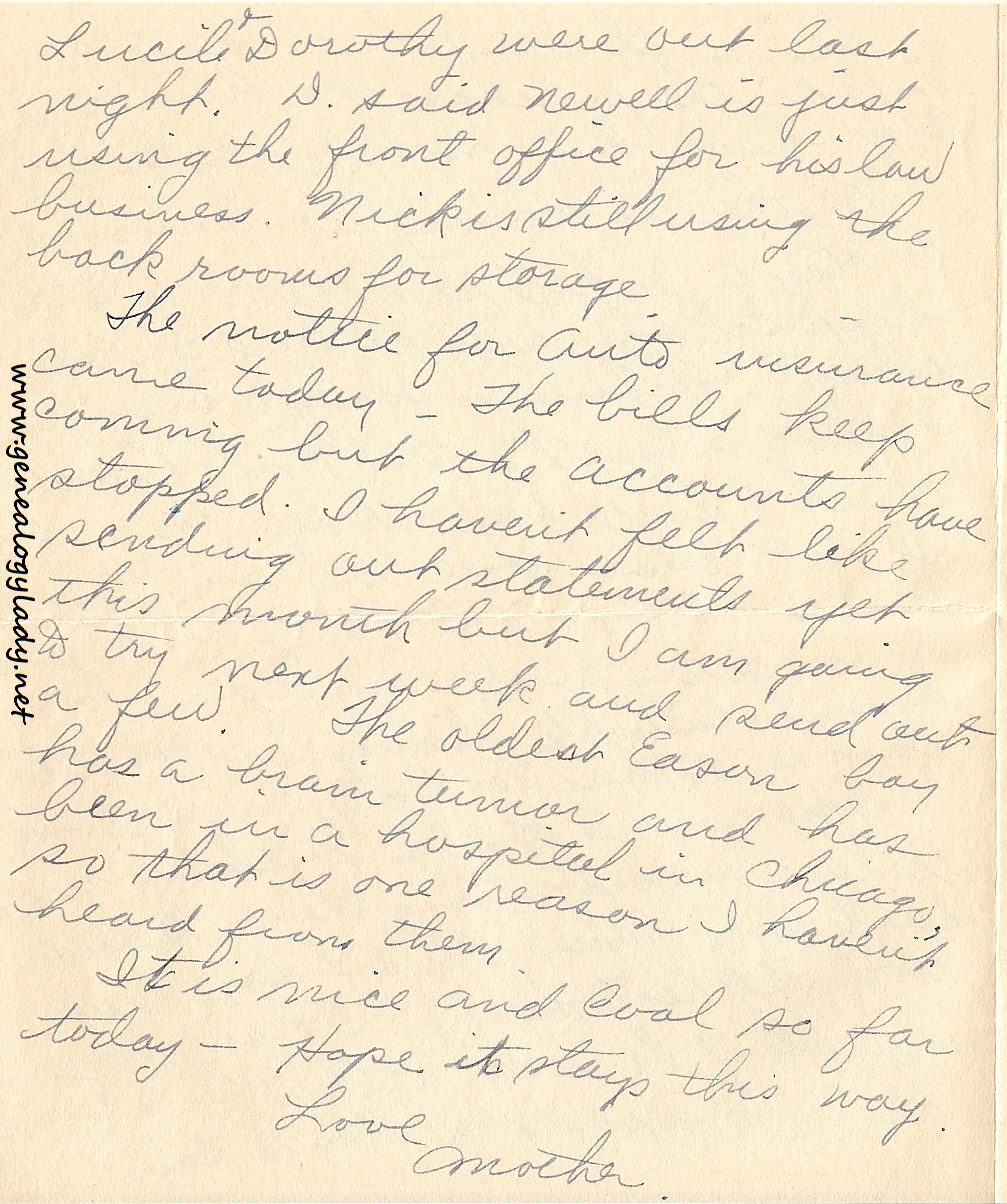 Lucile & Dorothy were out last
night. D. said Newell is just
using the front office for his law
business. Nick is still using the
back rooms for storage.
The nottice for Auto insurance
came today - The bills keep
coming but the accounts have
stopped. I haven't felt like
sending out statements yet
this month but I am going
to try next week and send out
a few. The oldest Eason boy
has a brain tumor and has
been in a hospital in Chicago,
so that is one reason I haven't
heard from them.
It is nice and cool so far
today - Hope it stays this way.
Love
Mother
www.genealogylady.net